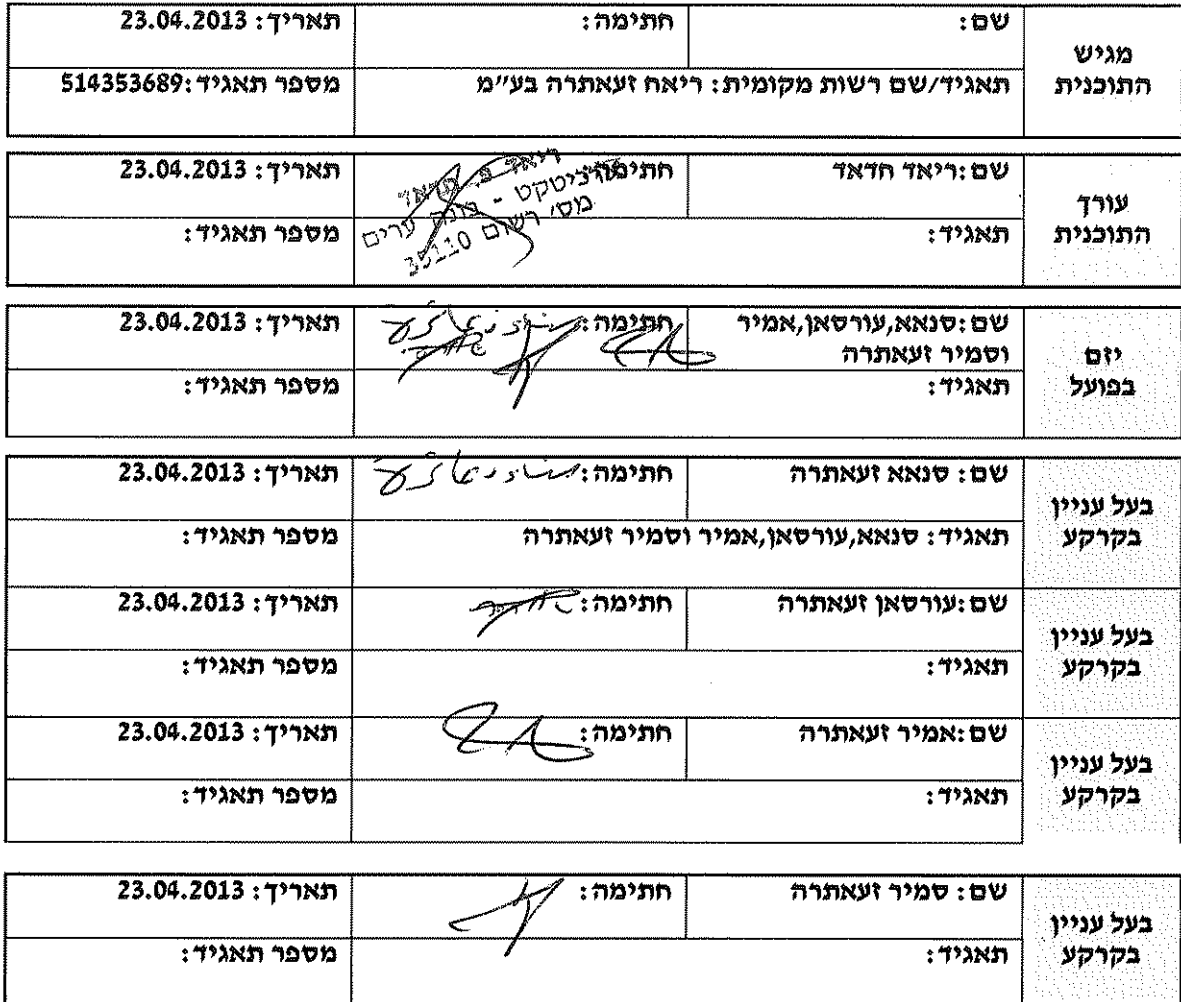 מגיש
התוכנית
שם: חתימה: תאריך: 23.04.2013
תאגיד/שם רשות מקומית: ריאח זעאתרה בע"מ מספר תאגיד:514353689
עורך
התוכנית
שם:ריאד חדאד חתימה: תאריך: 23.04.2013
ריאד פ. חדאד
ארכיטקט - בונה ערים
מס' רשום 35110
תאגיד: מספר תאגיד:
יזם
בפועל
שם:סנאא,עורסאן,אמיר חתימה: תאריך: 23.04.2013
וסמיר זעאתרה
תאגיד: מספר תאגיד:
בעל עניין
בקרקע
שם: סנאא זעאתרה חתימה: תאריך: 23.04.2013
תאגיד: סנאא,עורסאן,אמיר וסמיר זעאתרה מספר תאגיד:
בעל עניין
בקרקע
שם:עורסאן זעאתרה חתימה: תאריך: 23.04.2013
תאגיד: מספר תאגיד:
בעל עניין
בקרקע
שם:אמיר זעאתרה חתימה: תאריך: 23.04.2013
תאגיד: מספר תאגיד:
בעל עניין
בקרקע
שם: סמיר זעאתרה חתימה: תאריך: 23.04.2013
תאגיד: מספר תאגיד: